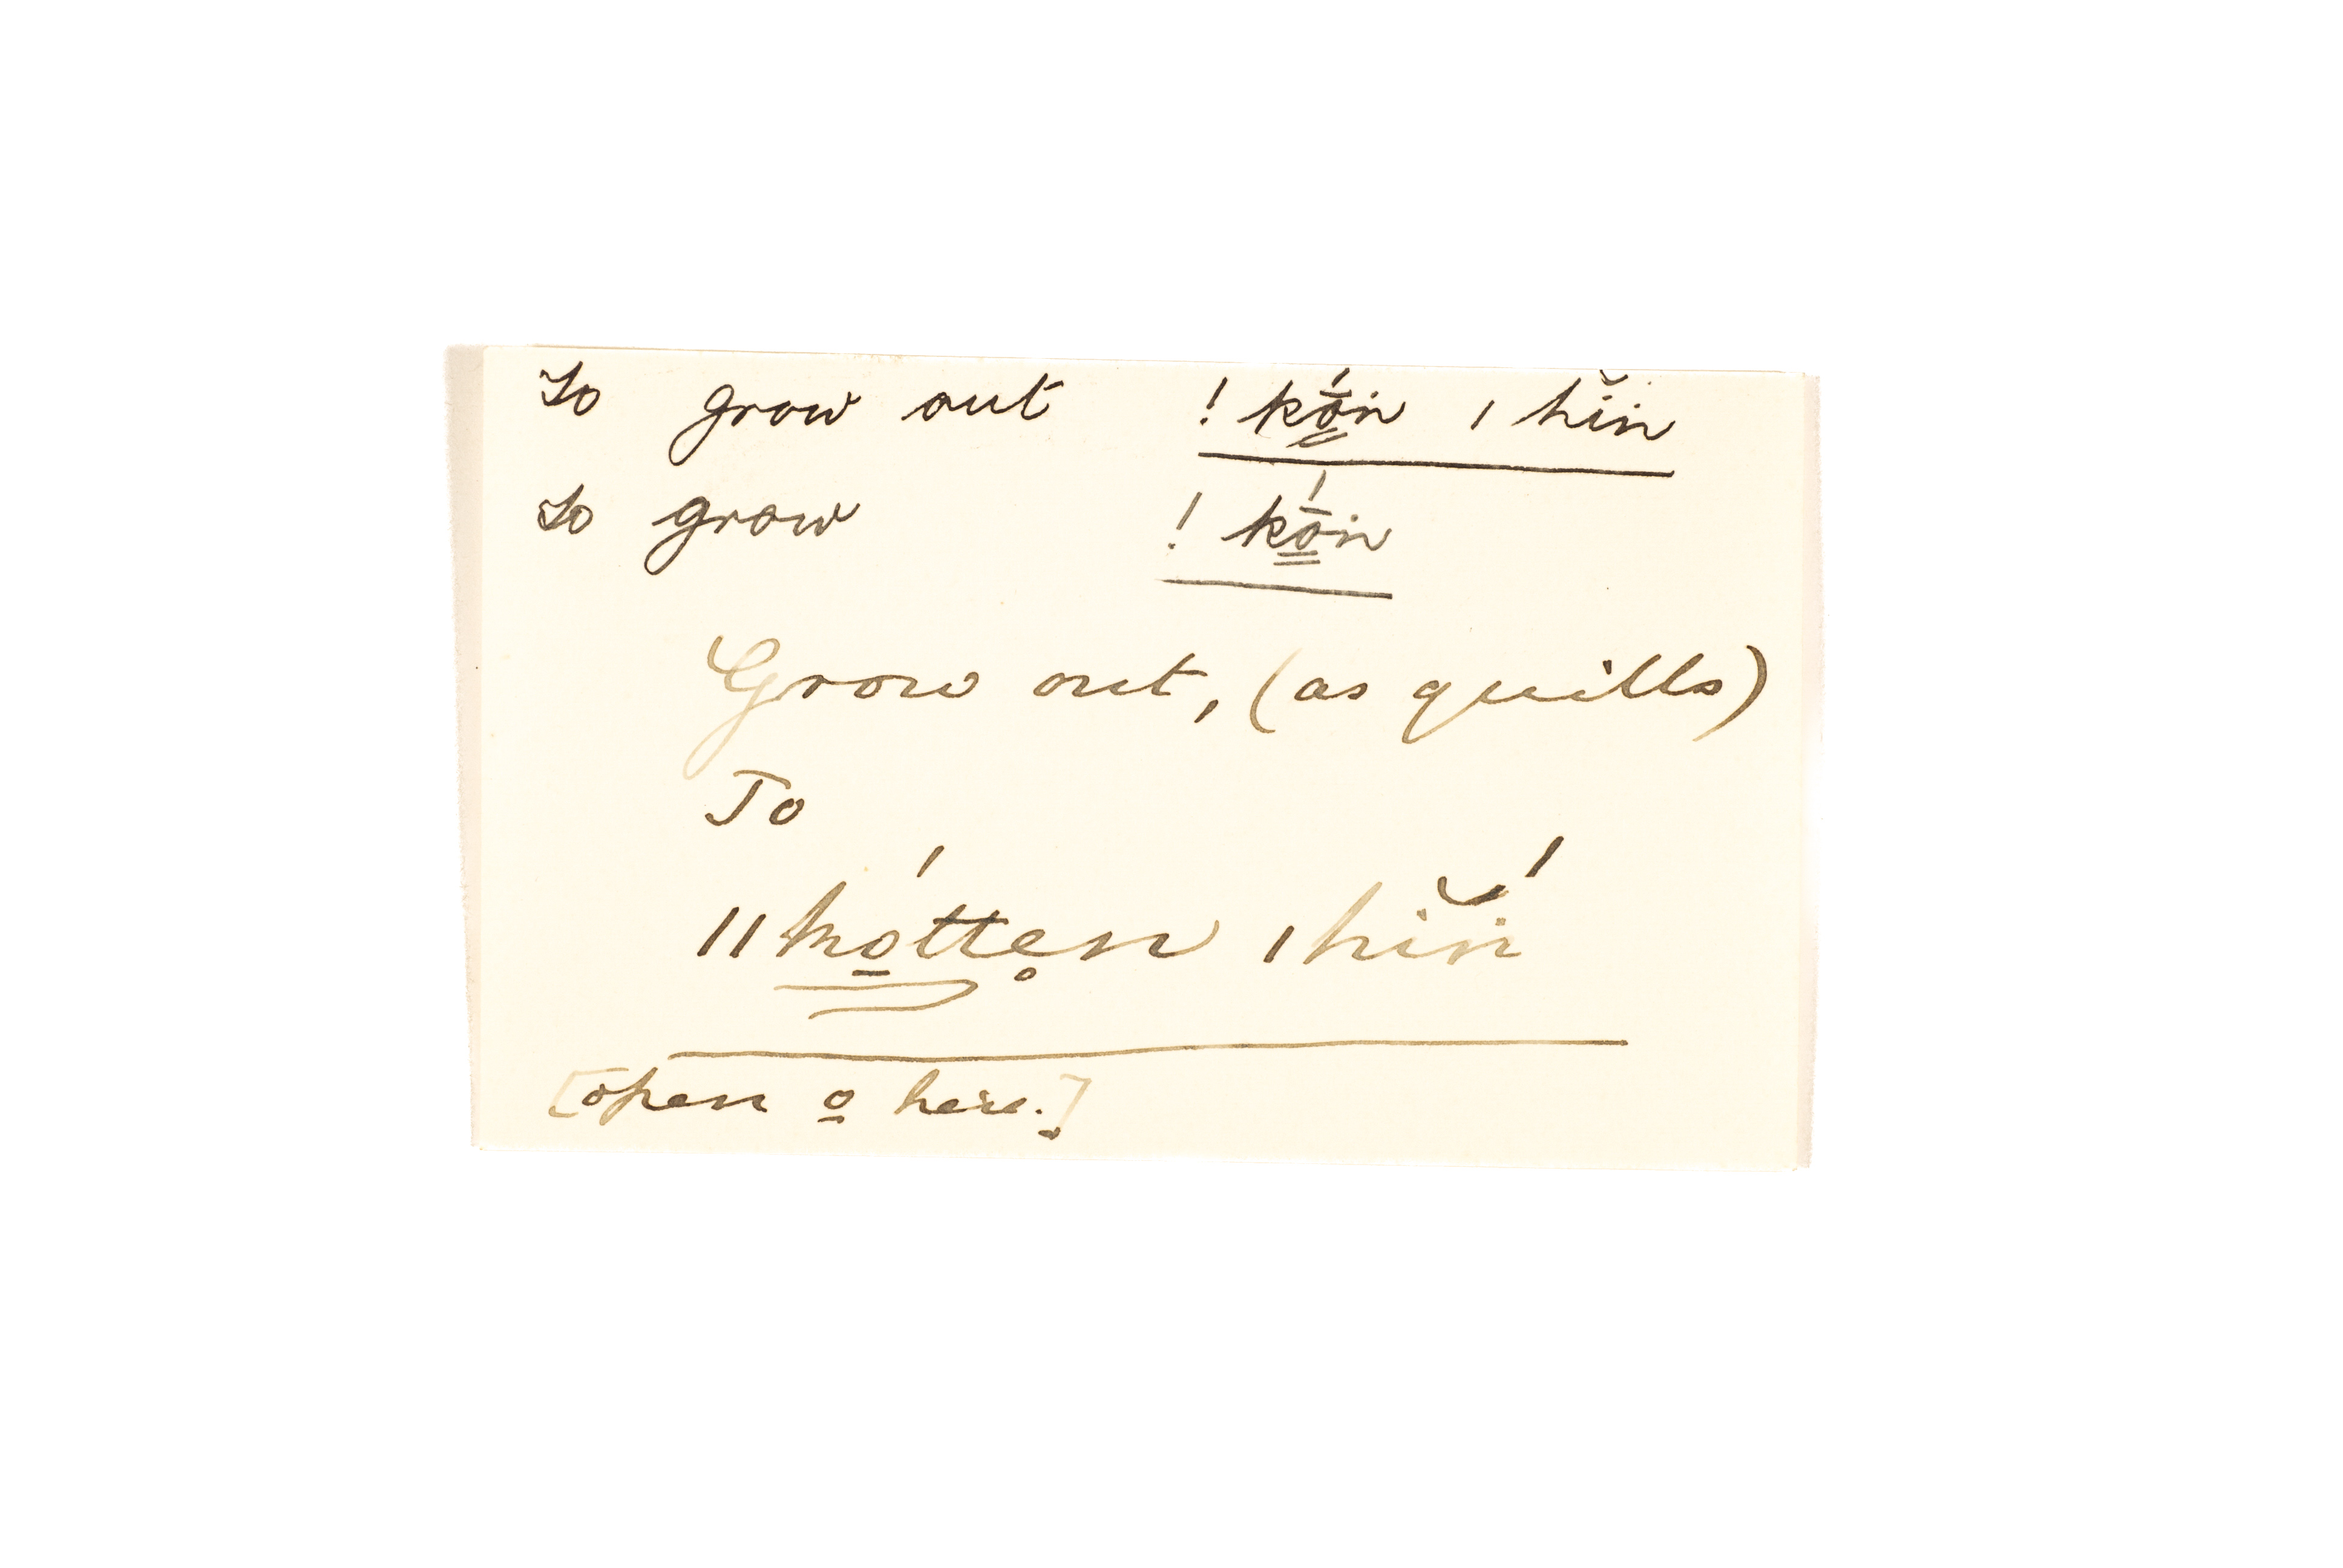 To grow out ! kṓ̳ṅ ǀ hĭṅ
To grow ! kṓ̳ṅ
Grow out, (as quills)
To
ǁkó̲tte̥n ǀhĭṅ́
[open o̲ here.]